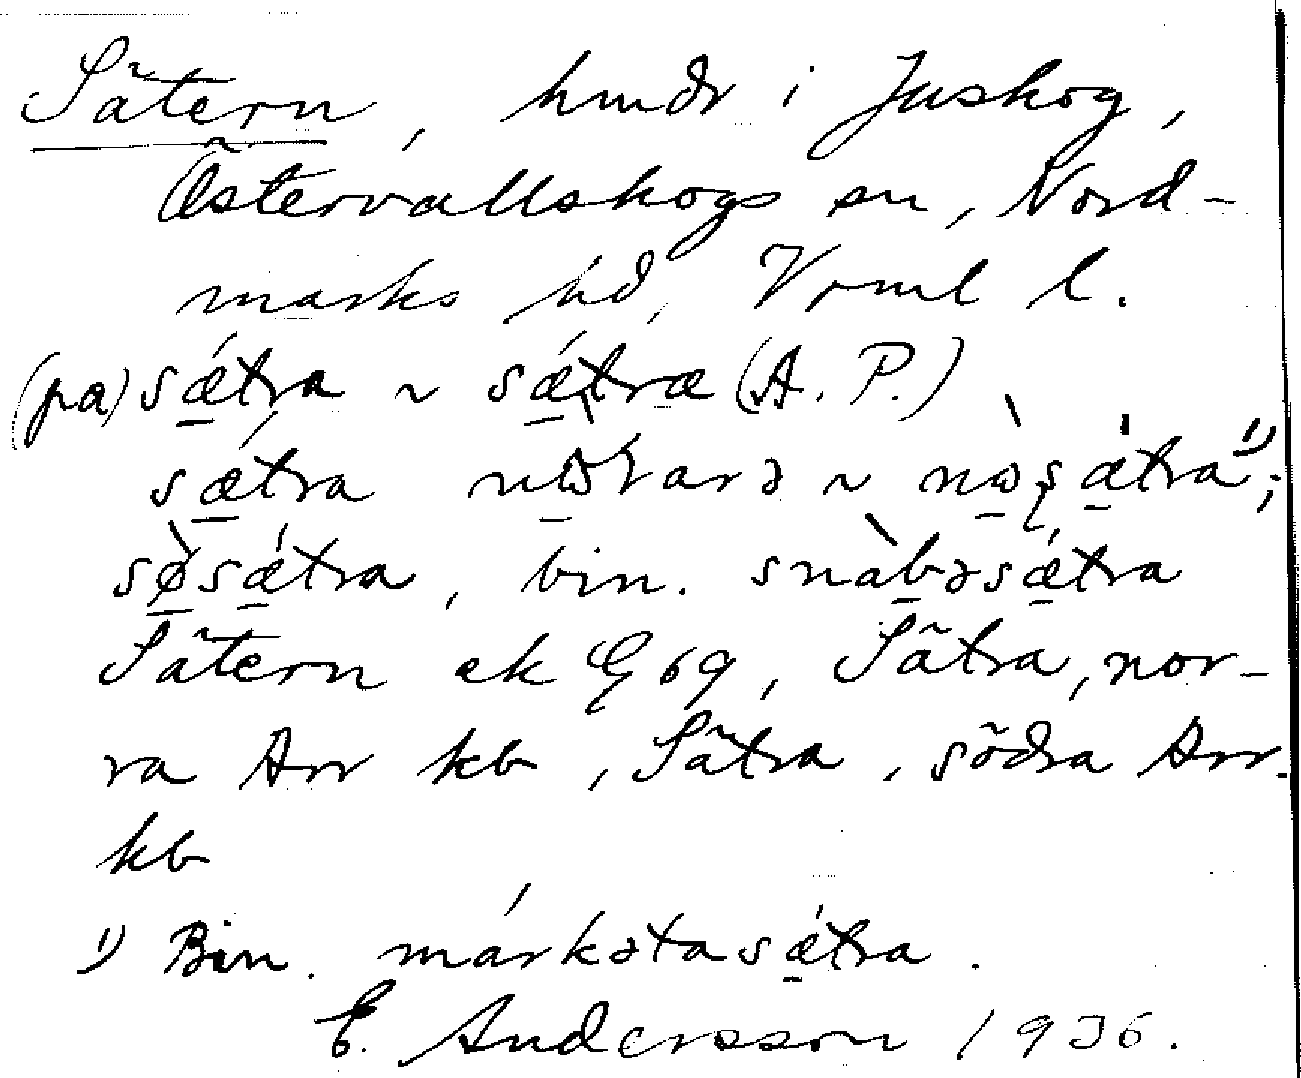 Sätern, hmdr i Juskog,
Östervallskogs sn, Nord-
marks hd, Vrml l.
(pa) sǽtra ~ sǽtræ (A. P.)
sǽtra  ~ 
sø̀sǽtra, bin. snàbəsǽtra
Sätern ek G 69, Sätra, nor-
ra Arr kb, Sätra, södra Arr.
kb
1) Bin. márkətasǽtra.
E. Andersson 1936.